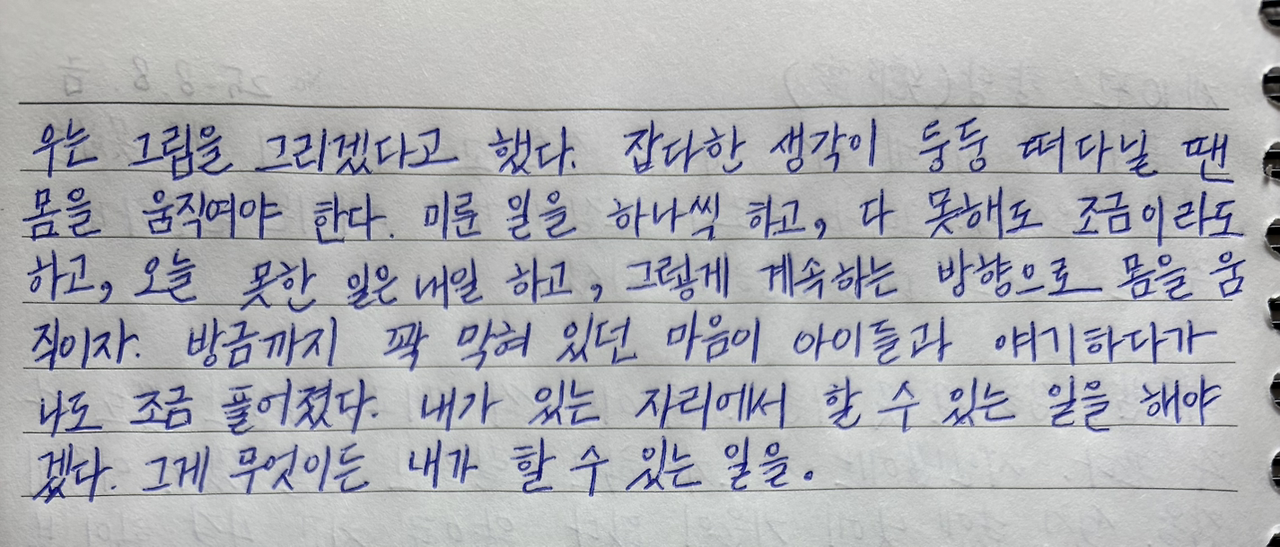 우는 그림을 그리겠다고 했다. 잡다한 생각이 둥둥 떠다닐 땐
몸을 움직여야 한다. 미룬 일을 하나씩 하고, 다 못해도 조금이라도
하고, 오늘 못한 일은 내일 하고, 그렇게 계속하는 방향으로 몸을 움
직이자. 방금까지 꽉 막혀 있던 마음이 아이들과 얘기하다가
나도 조금 풀어졌다. 내가 있는 자리에서 할 수 있는 일을 해야
겠다. 그게 무엇이든 내가 할 수 있는 일을.